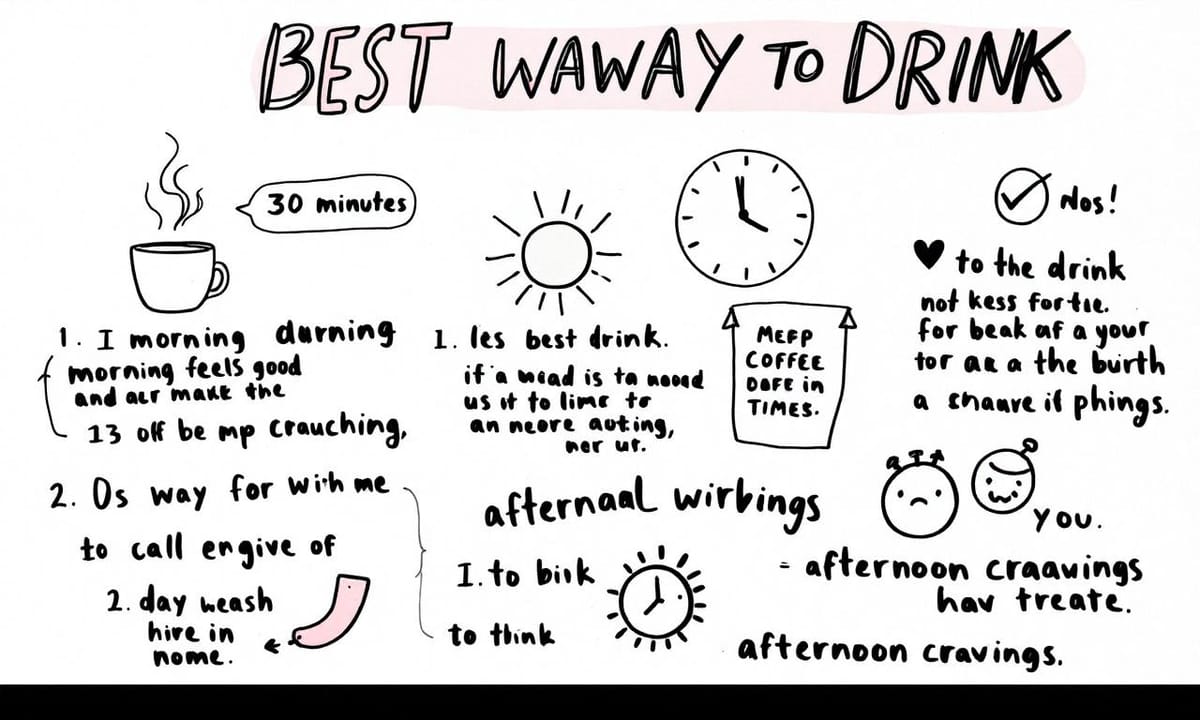 BEST WAWAY TO DRINK
30 minutes
1. I morning darning
morning feels good
and aer makt the
13 off be mp crauching,
2. Os way for with me
to call engive of
2. day weash
hire in
nome.
1. les best drink.
if a wead is ta nooed
us it to lime to
an neore aoting,
ner ur.
afternaal wirbings
I. to bisk
to think
MEFP
COFFEE
DOFE in
TIMES.
Nos!
♥ to the drink
not kess for tie.
for beak af a your
tor ar a the burth
a shaure if phings.
YOU.
= afternoon craavings
hav treate.
afternoon cravings.